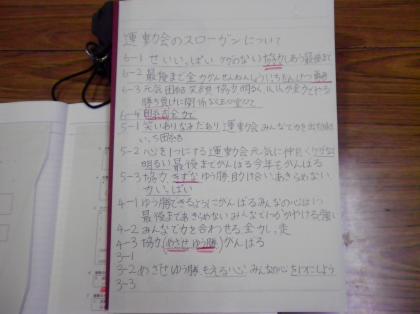 運動会のスローガンについて
6-1 せいいっぱい 協力しあう 最後まで
6-2 最後まで全力
6-3 元気 団結 笑顔 協力 明るく
勝ち負けに関係なく
6-4 全力で
5-1 笑いありなみだあり 運動会みんなで力を出
団結
5-2 心を1つにする運動会 元気に仲良く
明るい 最後までがんばる 今年もがんばる
5-3 協力 きずな ゆう勝 助け合い あきらめない
力いっぱい
4-1 ゆう勝できるようにがんばる みんなの心は1つ
最後まであきらめない みんなで
4-2 みんなで力を合わせる 全力し走
4-3 協力(めざせゆう勝)がんばる
3-1
3-2 めざせゆう勝 もえる心 みんなの心を1つにしよう
3-3